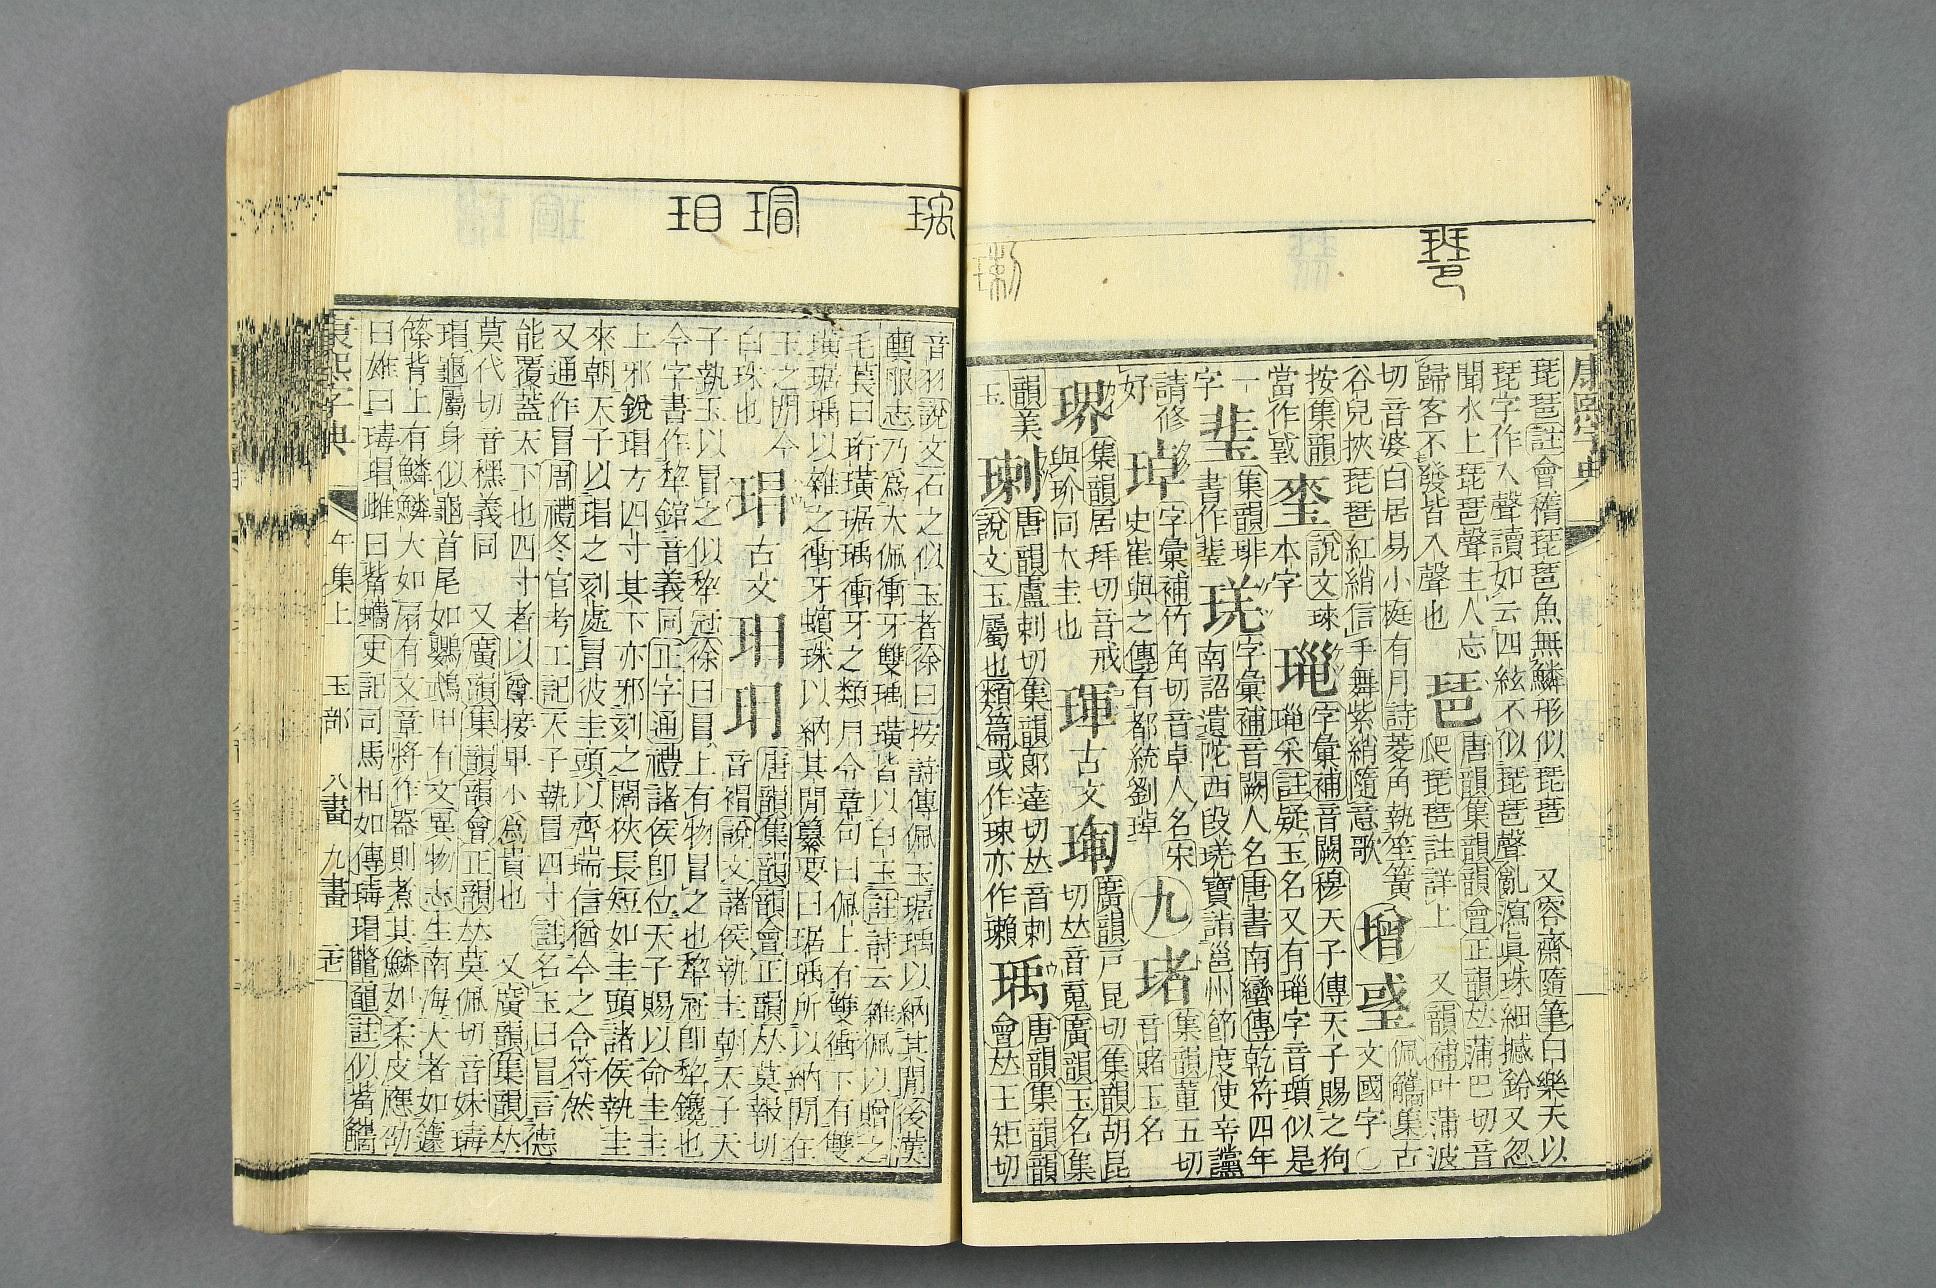 琵琶註會稽琵琶魚無鱗形似琵琶 又容齋隨筆白樂天以
琵字作入聲讀如云四絃不似琵琶聲亂瀉眞珠細撼鈴又忽
聞水上琵琶聲主人忘
歸客不發皆入聲也
琶
唐韻集韻韻會正韻𠀤蒲巴切音
爬琵琶註詳上 又韻補叶蒲波
切音婆白居易小庭有月詩菱角執笙簧
谷兒挾琵琶紅綃信手舞紫綃隨意歌
增
佩觿集古
文國字〇
按集韻
當作
本字
說文
字彙補音闕穆天子傳天子賜之狗
采註疑玉名又有字音瓆似是
一
字
集韻琲
書作琲
琓
字彙補音闕人名唐書南蠻傳乾符四年
南詔遣陀西段琓寶詣邕州節度使辛讜
請修
好
琸
字彙補竹角切音卓人名宋
史崔與之傳有都統劉琸
九
琽
集韻董五切
音賭玉名
集韻居拜切音戒
與玠同大圭也
琿
古文
廣韻戸昆切集韻胡昆
切𠀤音䰟廣韻玉名集
韻美
玉
瑓
唐韻盧剌切集韻郎達切𠀤音剌
說文玉屬也類篇或作瑓亦作瓎
瑀
唐韻集韻韻
會𠀤王矩切
音羽說文石之似玉者徐曰按詩傳佩玉琚瑀以納其閒後漢
輿服志乃爲大佩衝牙雙瑀璜皆以白玉註詩云雜佩以贈之
毛萇曰珩璜琚瑀衝牙之類月令章句曰佩上有雙衝下有雙
璜琚瑀以雜之衝牙蠙珠以納其閒纂要曰琚瑀所以納閒在
玉之閒今
白珠也
瑁
古文
玥
唐韻集韻韻會正韻𠀤莫報切
音𧛕說文諸侯執圭朝天子天
子執玉以冒之似犂冠徐曰冒上有物冒之也犂冠卽犂鑱也
今字書作犂錧音義同正字通禮諸侯卽位天子賜以命圭圭
上邪銳瑁方四寸其下亦邪刻之闊狹長短如圭頭諸侯執圭
來朝天子以瑁之刻處冒彼圭頭以齊瑞信猶今之合符然
又通作冒周禮冬官考工記天子執冒四寸註名玉曰冒言德
能覆蓋天下也四寸者以尊接卑小爲貴也 又廣韻集韻𠀤
莫代切音䆀義同 又廣韻集韻韻會正韻𠀤莫佩切音妹瑇
瑁龜屬身似龜首尾如鸚鵡甲有文異物志生南海大者如籧
篨背上有鱗鱗大如扇有文章將作器則煮其鱗如柔皮應劭
曰雄曰瑇瑁雌曰觜蠵史記司馬相如傳瑇瑁鼈黿註似觜蠵
康熙字典
午集上 玉部 八畫 九畫